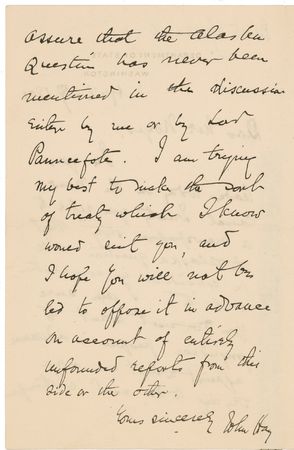 assure that the Alaskan
Question has never been
mentioned in the discussion
either by me or by Lord
Pauncefote. I am trying
my best to make the sort
of treaty which I know
would suit you, and
I hope you will not be
led to oppose it in advance
on account of entirely
unfounded reports from this
side or the other.
Yours sincerely John Hay